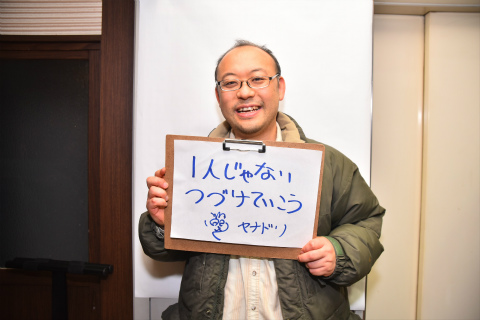 1人じゃない
つづけていこう
ヤナドリ